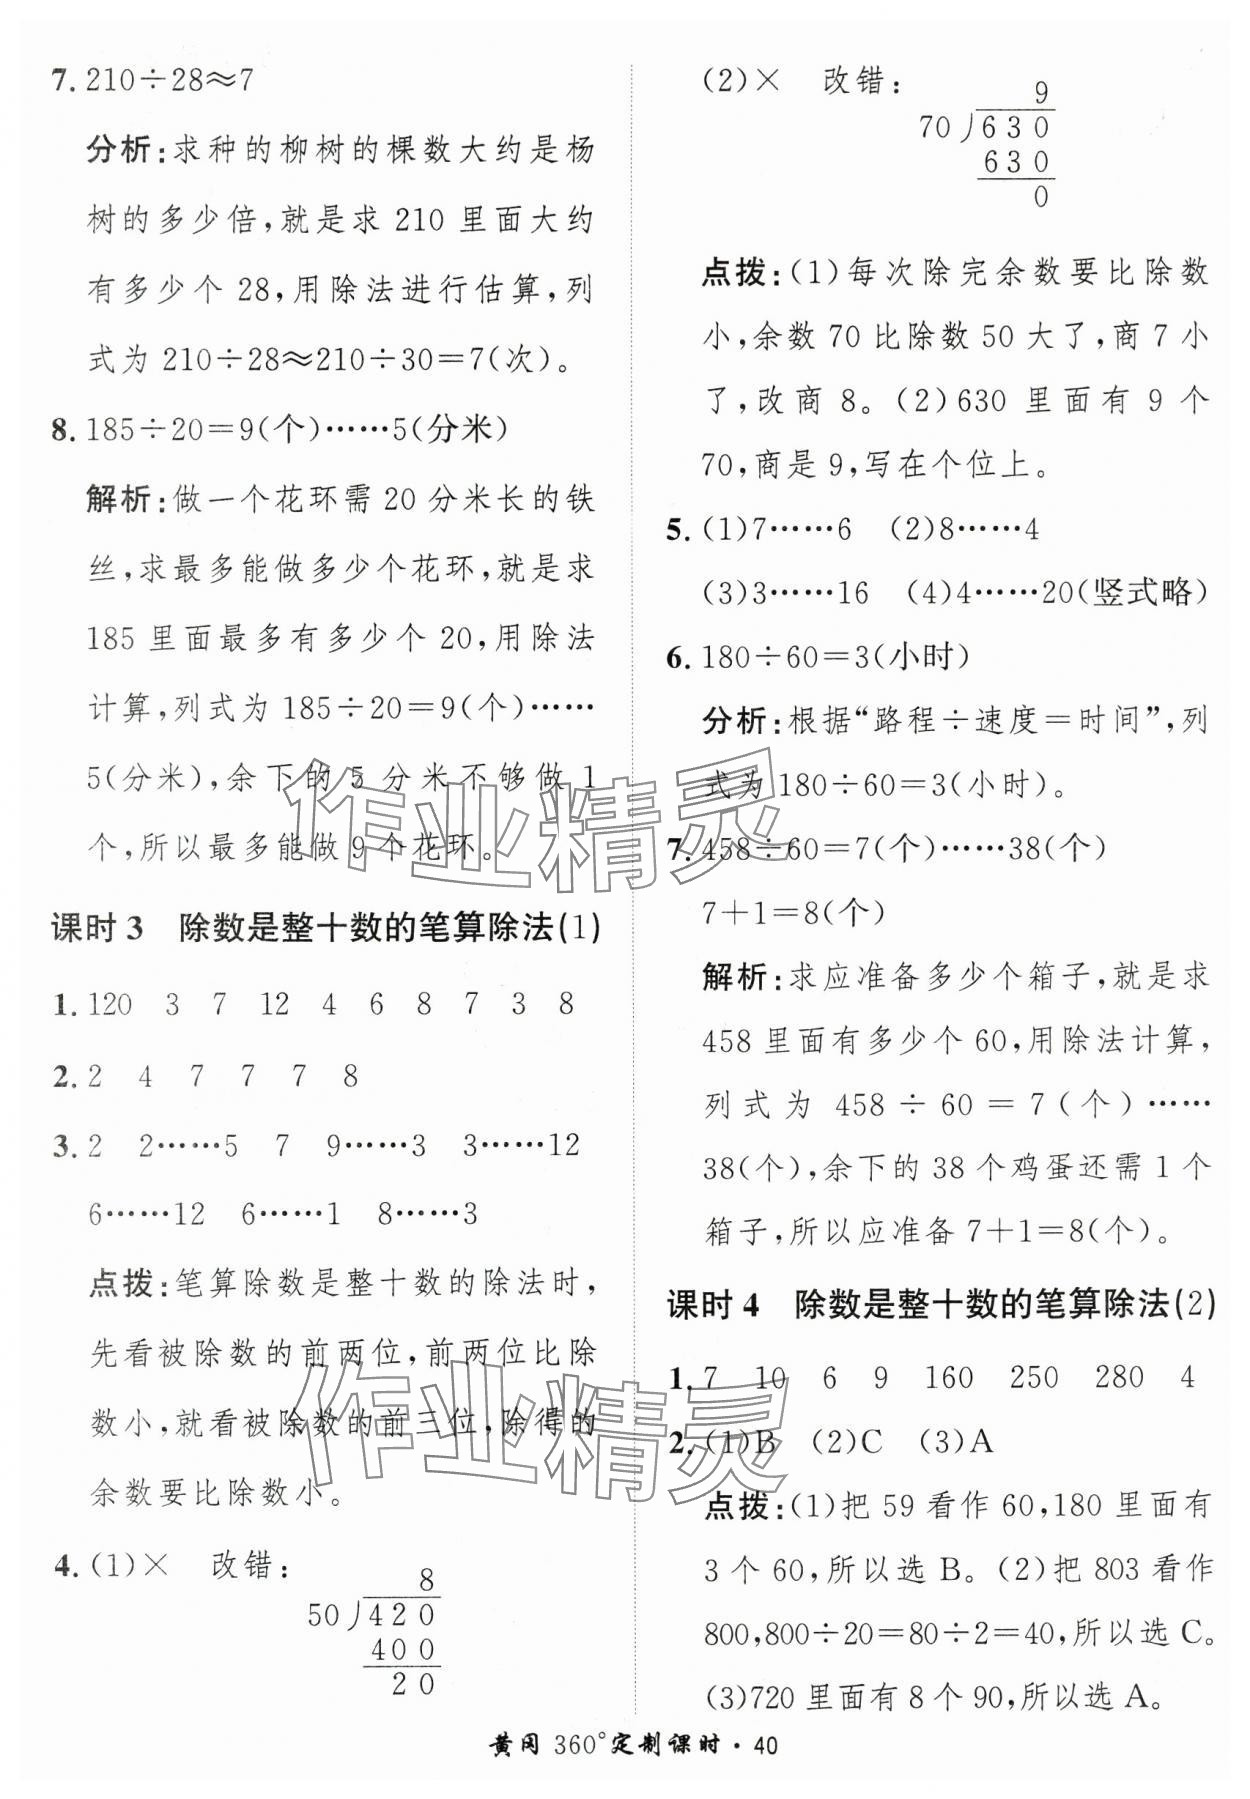 7. 210÷28≈7
分析:求种的柳树的棵数大约是杨
树的多少倍,就是求 210 里面大约
有多少个 28,用除法进行估算,列
式为 210÷28≈210÷30=7(次)。
8. 185÷20=9(个)……5(分米)
解析:做一个花环需 20 分米长的铁
丝,求最多能做多少个花环,就是求
185 里面最多有多少个 20,用除法
计算,列式为 185÷20=9(个)……
5(分米),余下的 5 分米不够做 1
个,所以最多能做 9 个花环。
课时 3 除数是整十数的笔算除法(1)
1. 120 3 7 12 4 6 8 7 3 8
2. 2 4 7 7 7 8
3. 2 2……5 7 9……3 3……12
6……12 6……1 8……3
点拨:笔算除数是整十数的除法时,
先看被除数的前两位,前两位比除
数小,就看被除数的前三位,除得的
余数要比除数小。
4. (1)× 改错:
8
50)420
400
20
(2)× 改错:
9
70)630
630
0
点拨:(1)每次除完余数要比除数
小,余数 70 比除数 50 大了,商 7 小
了,改商 8。(2)630 里面有 9 个
70,商是 9,写在个位上。
5. (1)7……6 (2)8……4
(3)3……16 (4)4……20(竖式略)
6. 180÷60=3(小时)
分析:根据“路程÷速度=时间”,列
式为 180÷60=3(小时)。
7. 458÷60=7(个)……38(个)
7+1=8(个)
解析:求应准备多少个箱子,就是求
458 里面有多少个 60,用除法计算,
列式为 458÷60=7(个)……
38(个),余下的 38 个鸡蛋还需 1 个
箱子,所以应准备 7+1=8(个)。
课时 4 除数是整十数的笔算除法(2)
1. 7 10 6 9 160 250 280 4
2. (1)B (2)C (3)A
点拨:(1)把 59 看作 60,180 里面有
3 个 60,所以选 B。(2)把 803 看作
800,800÷20=80÷2=40,所以选 C。
(3)720 里面有 8 个 90,所以选 A。
黄冈 360°定制课时·40
作业精灵
作业精灵